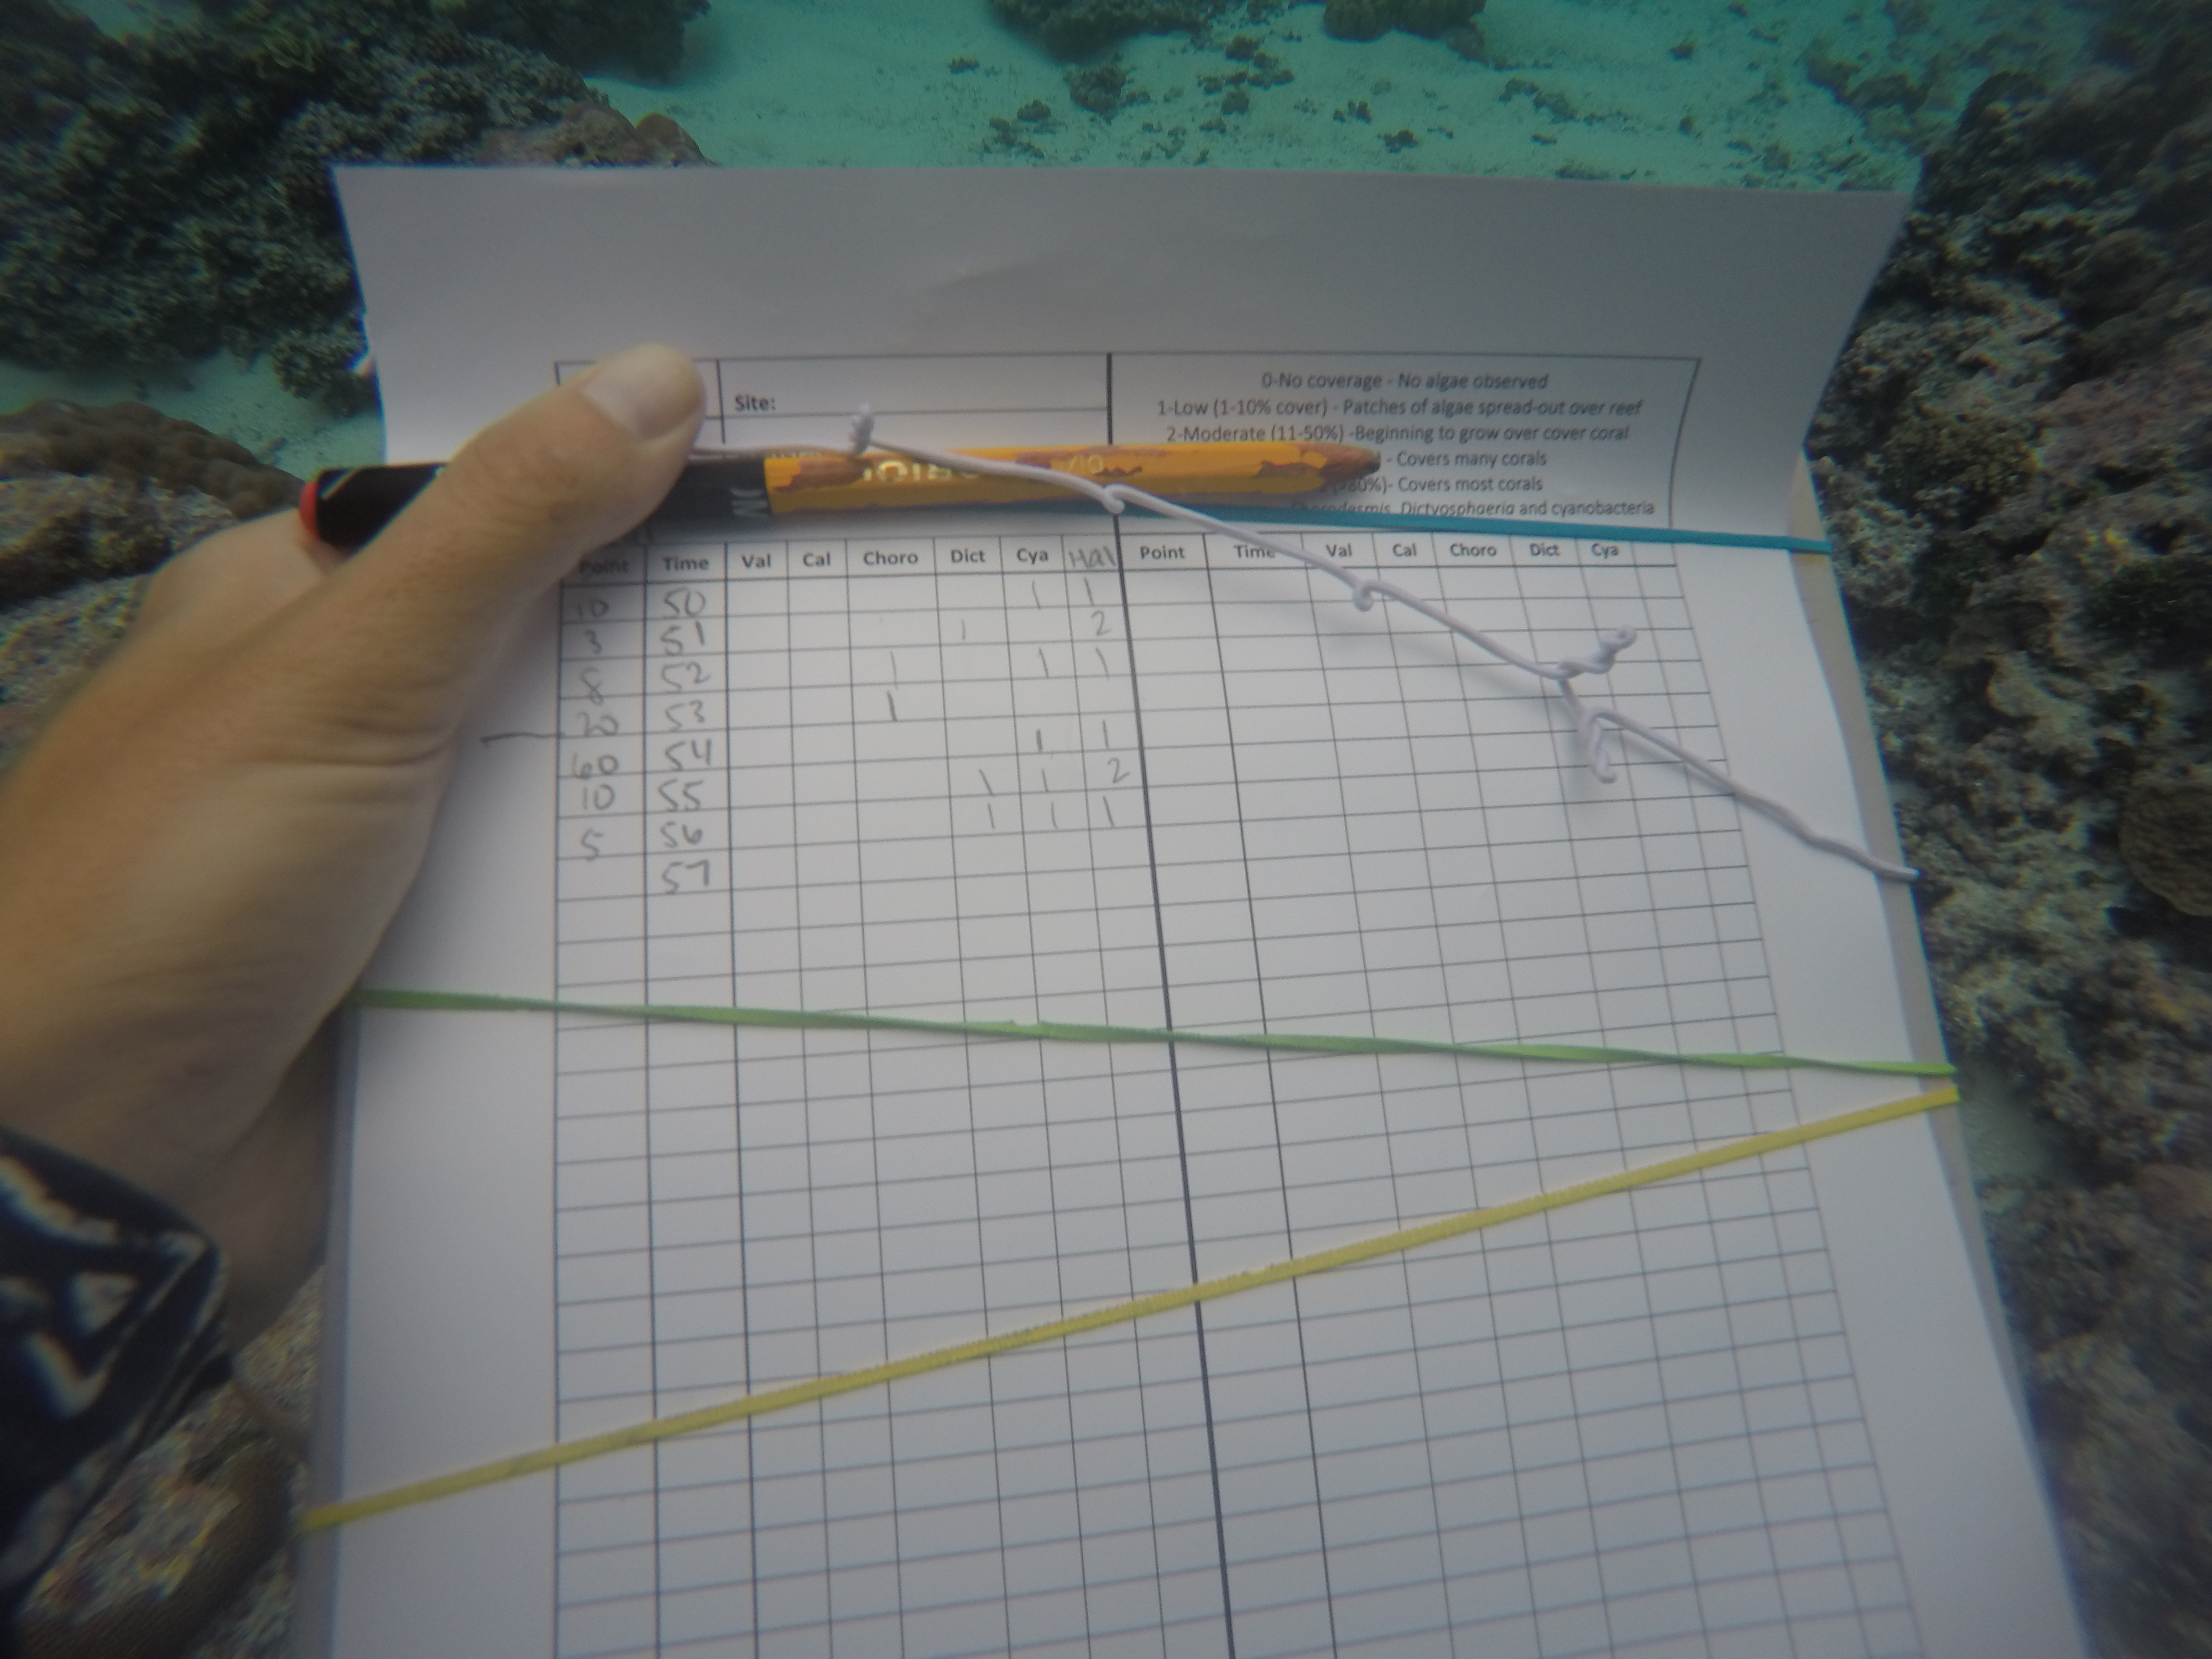 Site:
0-No coverage - No algae observed
1-Low (1-10% cover) - Patches of algae spread-out over reef
2-Moderate (11-50%) -Beginning to grow over cover coral
- Covers many corals
- Covers most corals
Dictyosphaeria and cyanobacteria
Point Time Val Cal Choro Dict Cya Hal Point Time Val Cal Choro Dict Cya
10 50 1 1
3 51 1 2
8 52 1 1 1
20 53 1
60 54 1 1
10 55 1 1 2
5 56 1 1 1
57